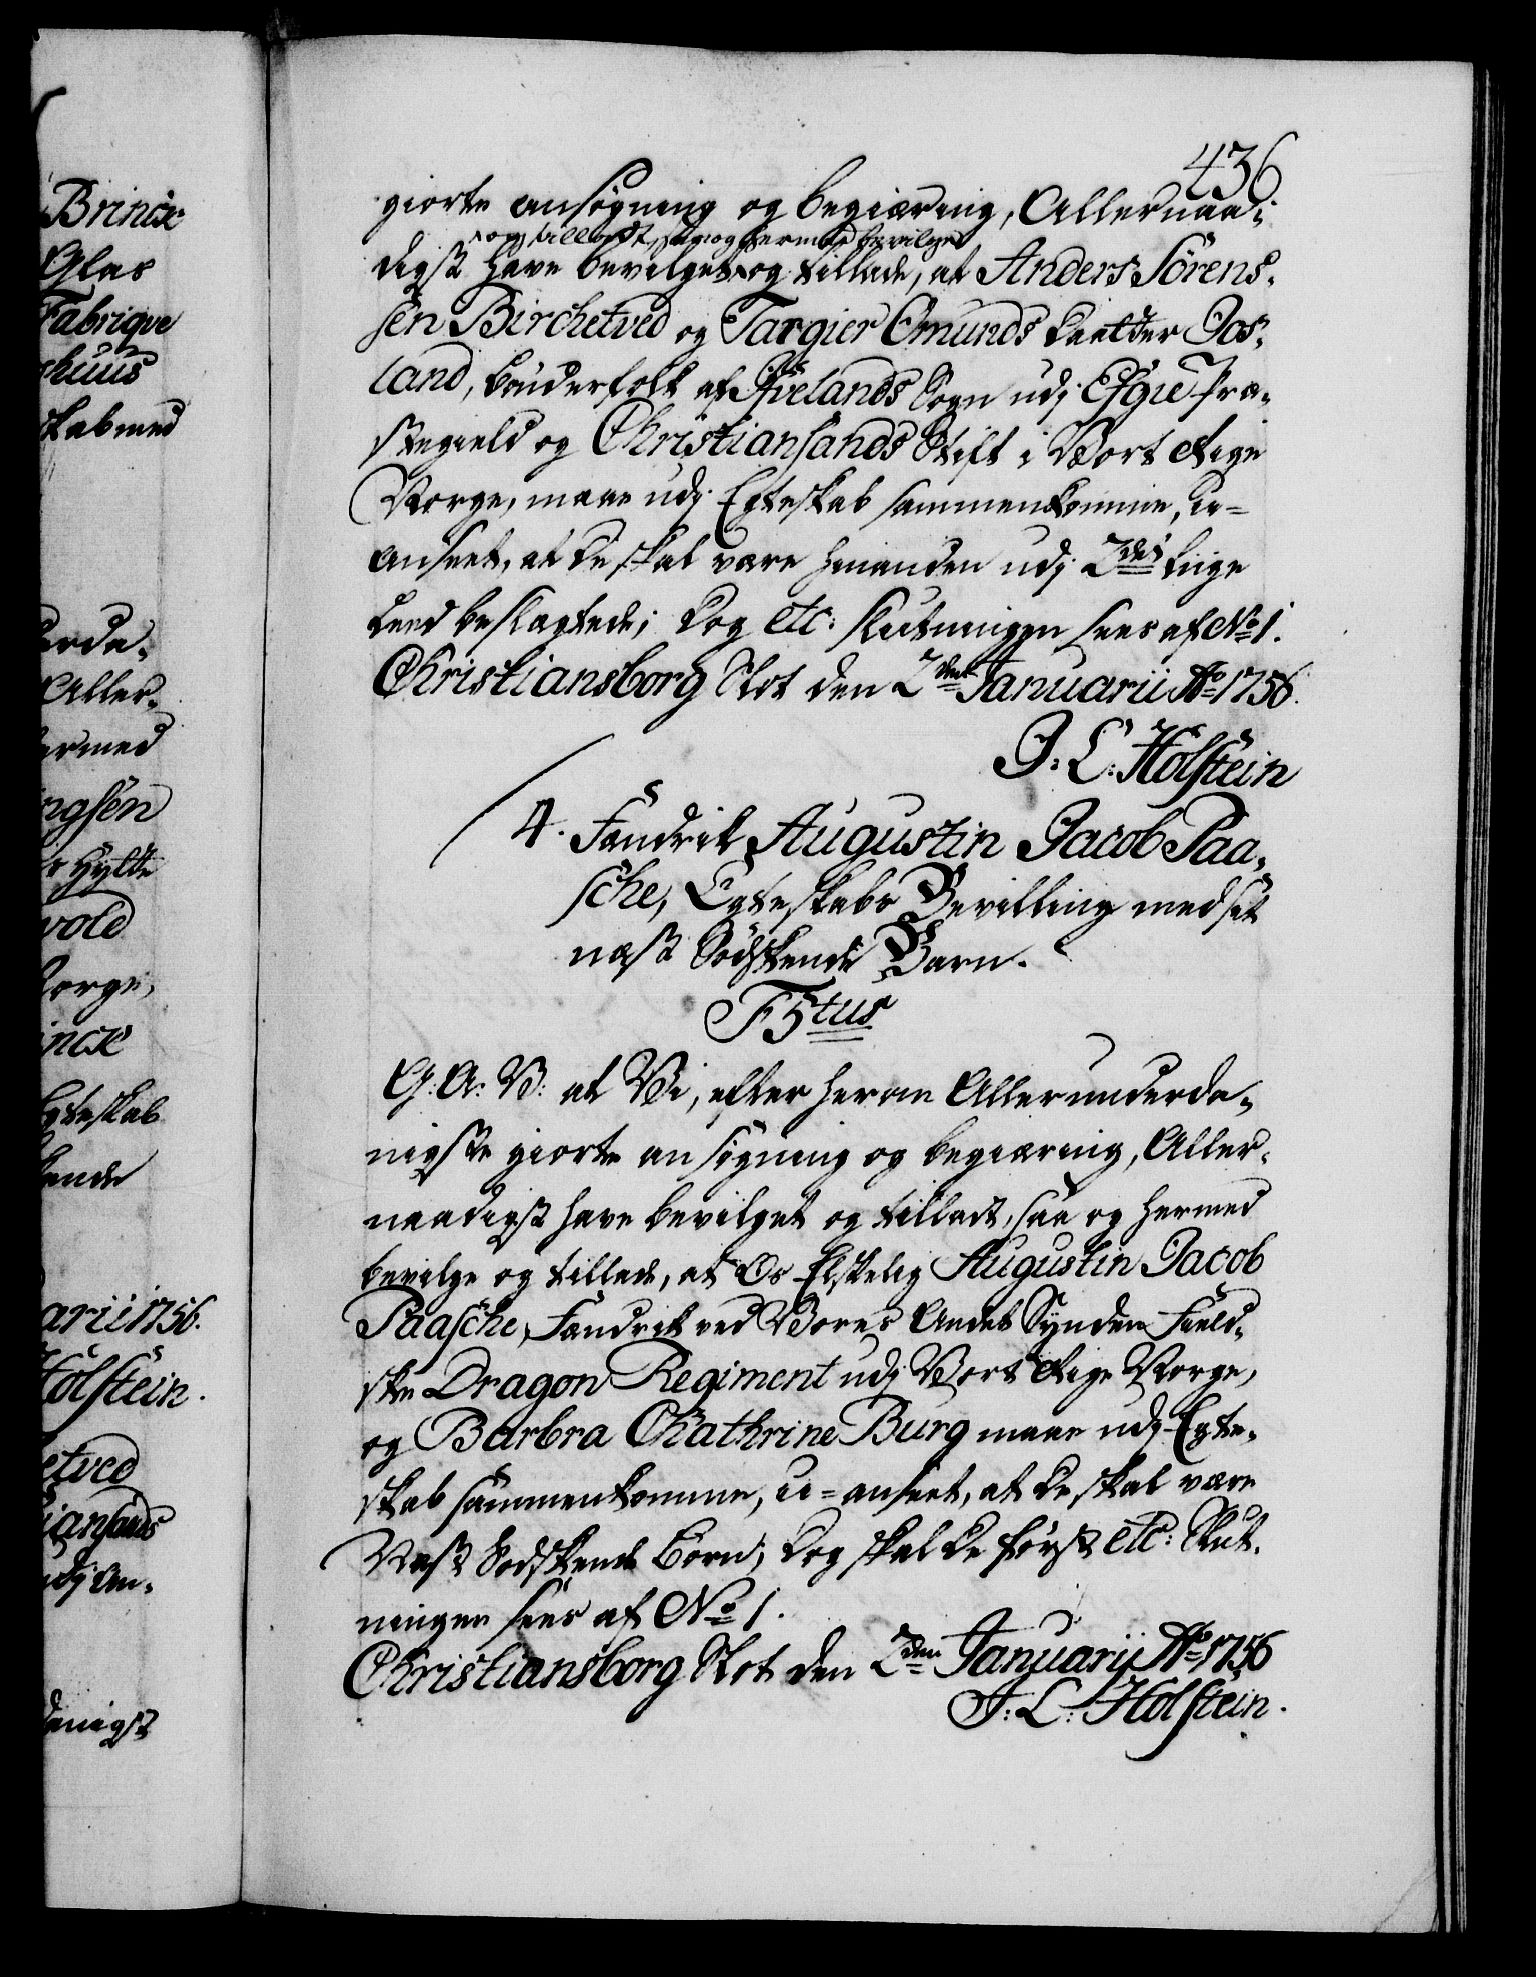 436
giorte ansøgning og begiæring, Allernaa-
og tilladt, saa og hermed bevilge
digst have bevilget og tillade, at Anders Sörens-
sen Birchetved og Targier Omunds Daatter Oos-
land, bønderfolk af Ifvelands Sogn udj Efgie Præ-
stegield og Christiansands Stift i Vort Rige
Norge, maae udj Egteskab sammenkomme, u-
anseet, at de skal være hinanden udj 2det Liige
Leed beslægtede; dog etc: Slutningen sees af No 1.
Christiansborg Slot den 2den Januarii Ao 1756.
J: L: Holstein
4. Fændrik Augustin Jacob Paa-
sche, Egteskabs Bevilling med sit
næst Södskende Barn.
F 5tus
G: A: V: at Vi, efter herom Allerunderda-
nigste giorte ansøgning og begiæring, Aller-
naadigst have bevilget og tilladt, saa og hermed
bevilge og tillade, at Os Elskelig Augustin Jacob
Paasche, Fændrik ved Vores Andet Synden Field-
ske Dragon Regiment udj Vort Rige Norge,
og Barbra Chathrine Burg maae udj Egte-
skab sammenkomme, u-anseet, at de skal være
Næst Södskende Börn; dog skal de først etc: Slut-
ningen sees af No 1.
Christiansborg Slot den 2den Januarii Ao 1756
J: L: Holstein.
Brincx
Glas
Fabriqve
huus
skab med
Aller-
ermed
ngsen
Hytte
vold
Norge,
incx
Egteskab
kende
arii 1756.
Holstein.
etved
iansands
udj An-
danigst